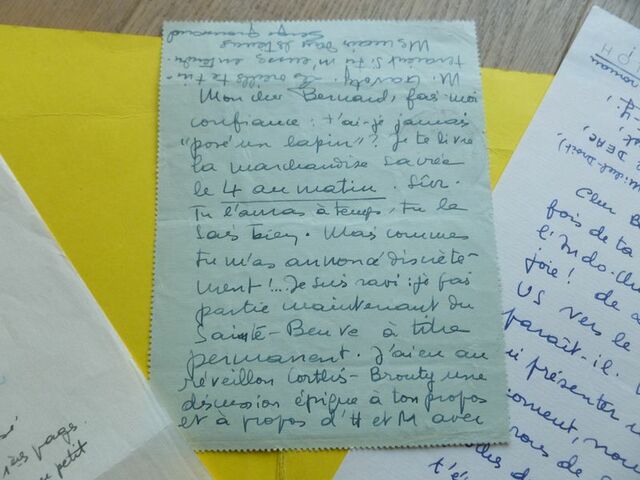 Mon cher Bernard, fais-moi
confiance : t'ai-je jamais
"posé un lapin" ? Je te livre
la marchandise sacrée
le 4 au matin. Sûr.
Tu l'auras à temps, tu le
sais bien. Mais comme
tu m'as annoncé discrète-
ment !... Je suis ravi : je fais
partie maintenant du
Sainte-Beuve à titre
permanent. J'ai eu au
réveillon Corthis-Brouty une
discussion épique à ton propos
et à propos d'H et M avec
M. Gavoty. Les oreilles te tin-
teraient si tu m'avais entendu.
Serge Groussard
1ères pages.
petit
Cher
fois de ta
l'Indo-Chi
joie ! de
US vers le
paraît-il.
présenter
moment, nou